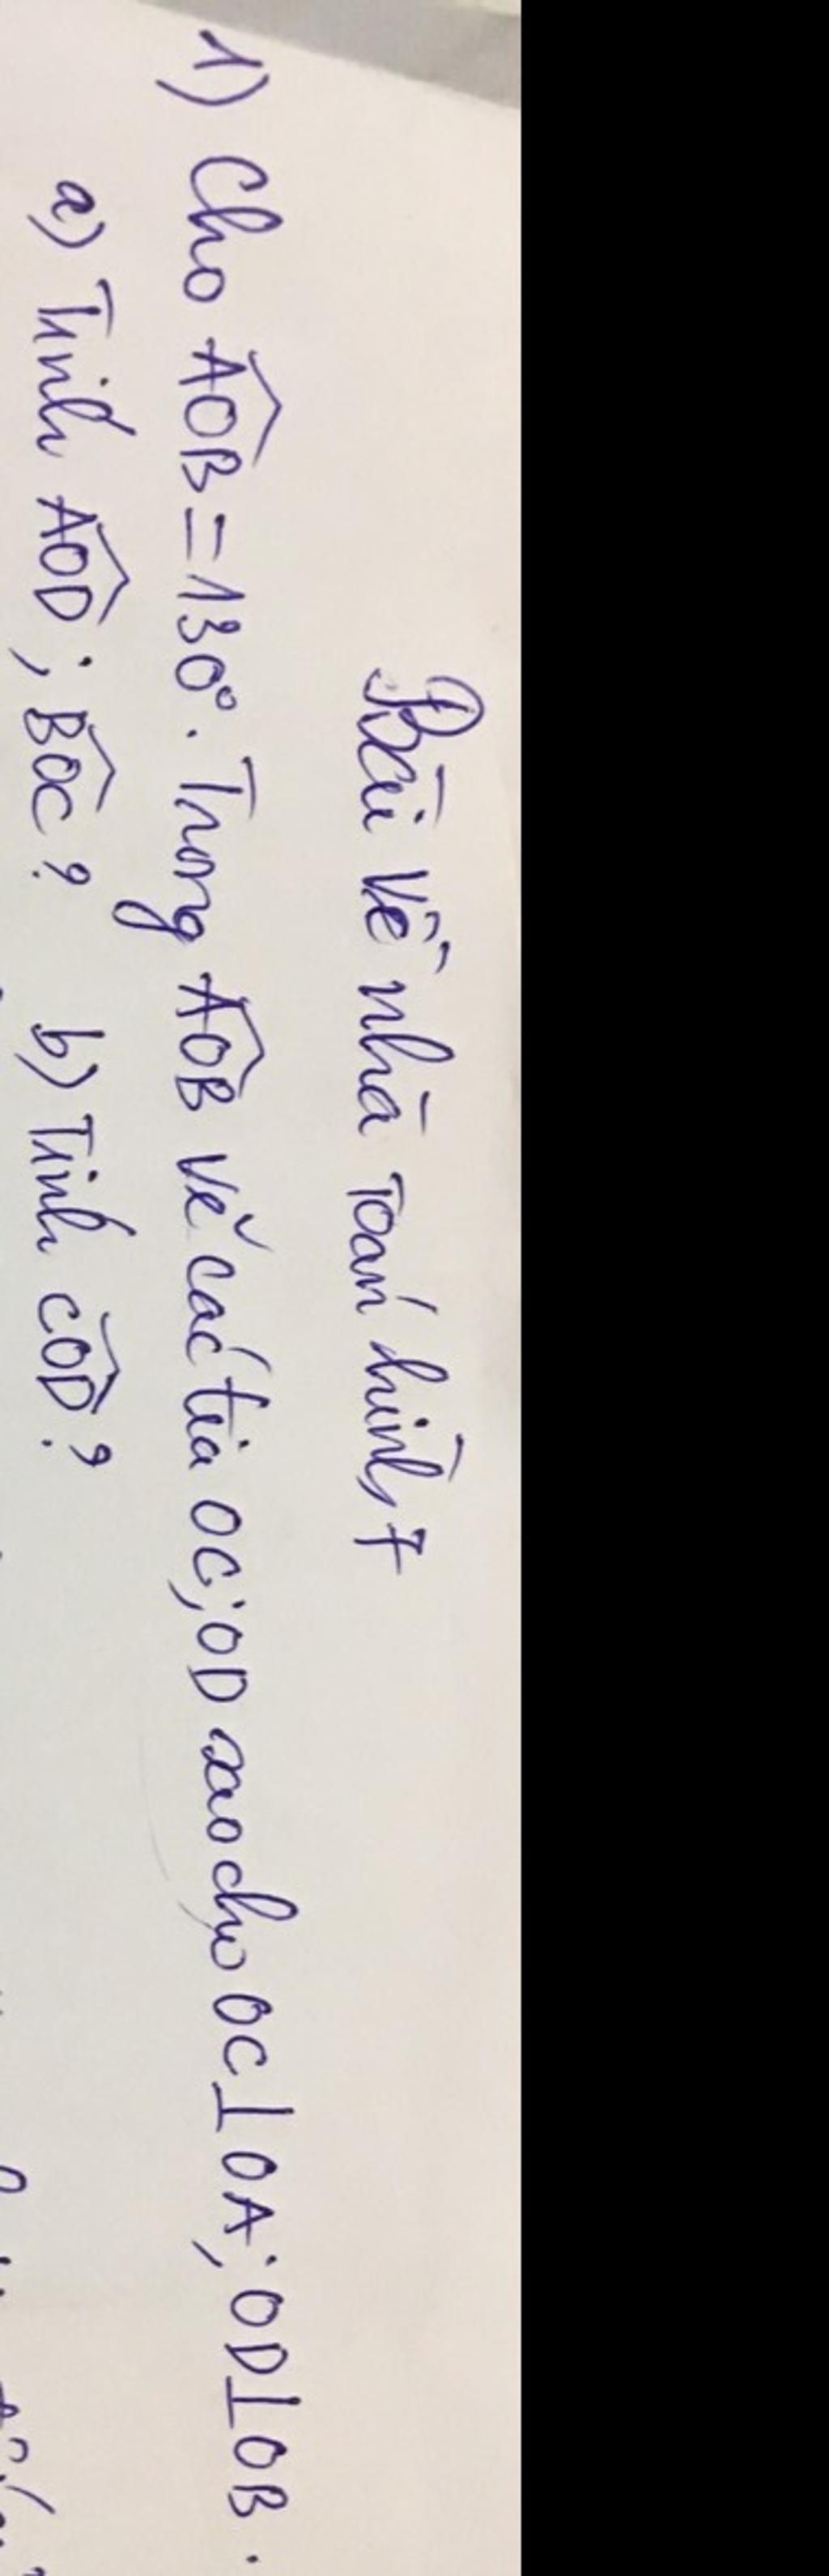 Bài về nhà Toán hình 7
1) Cho AOB = 130°. Trong AOB vẽ các tia OC; OD sao cho OC ⊥ OA; OD ⊥ OB.
a) Tính AOD; BOC? b) Tính COD?